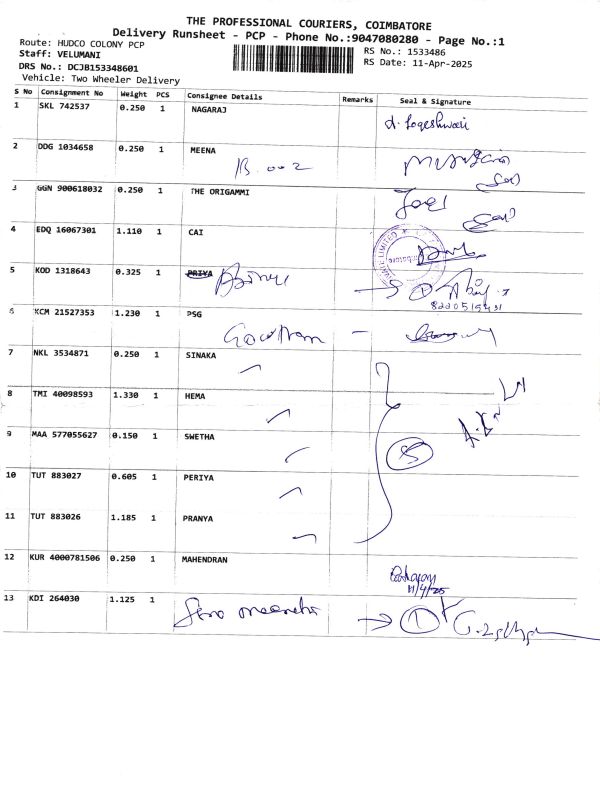 THE PROFESSIONAL COURIERS, COIMBATORE
Delivery Runsheet - PCP - Phone No.:9047080280 - Page No.:1
Route: HUDCO COLONY PCP
RS No.: 1533486
Staff: VELUMANI
RS Date: 11-Apr-2025
DRS No.: DCJB153348601
Vehicle: Two Wheeler Delivery
S No Consignment No Weight PCS Consignee Details Remarks Seal & Signature
1 SKL 742537 0.250 1 NAGARAJ
d. Logeshwari
2 DDG 1034658 0.250 1 MEENA
B.002
3 GGN 900618032 0.250 1 THE ORIGAMMI
4 EDQ 16067301 1.110 1 CAI
5 KOD 1318643 0.325 1 PRIYA
6 KCM 21527353 1.230 1 PSG
Gowtham
7 NKL 3534871 0.250 1 SINAKA
8 TMI 40098593 1.330 1 HEMA
9 MAA 577055627 0.150 1 SWETHA
5
10 TUT 883027 0.605 1 PERIYA
11 TUT 883026 1.185 1 PRANYA
12 KUR 4000781506 0.250 1 MAHENDRAN
11/4/25
13 KDI 264030 1.125 1
1